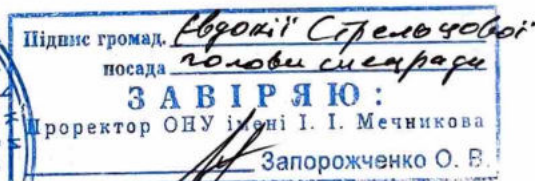 Підпис громад. Євдокії Стрельцової
посада голови спецради
ЗАВІРЯЮ:
Проректор ОНУ імені І. І. Мечникова
Запорожченко О. В.